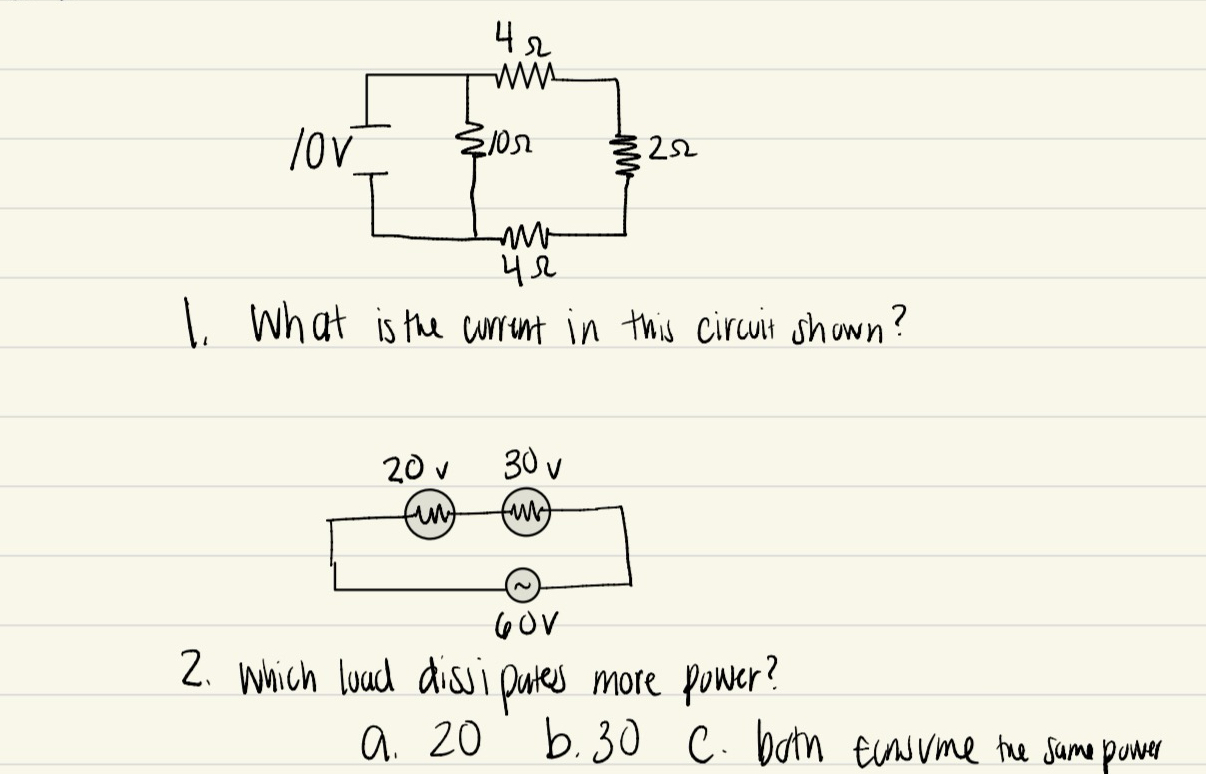 4Ω
10V
10Ω
2Ω
4Ω
1. What is the current in this circuit shown?
20 v 30 v
60V
2. Which load dissipates more power?
a. 20 b. 30 c. both consume the same power